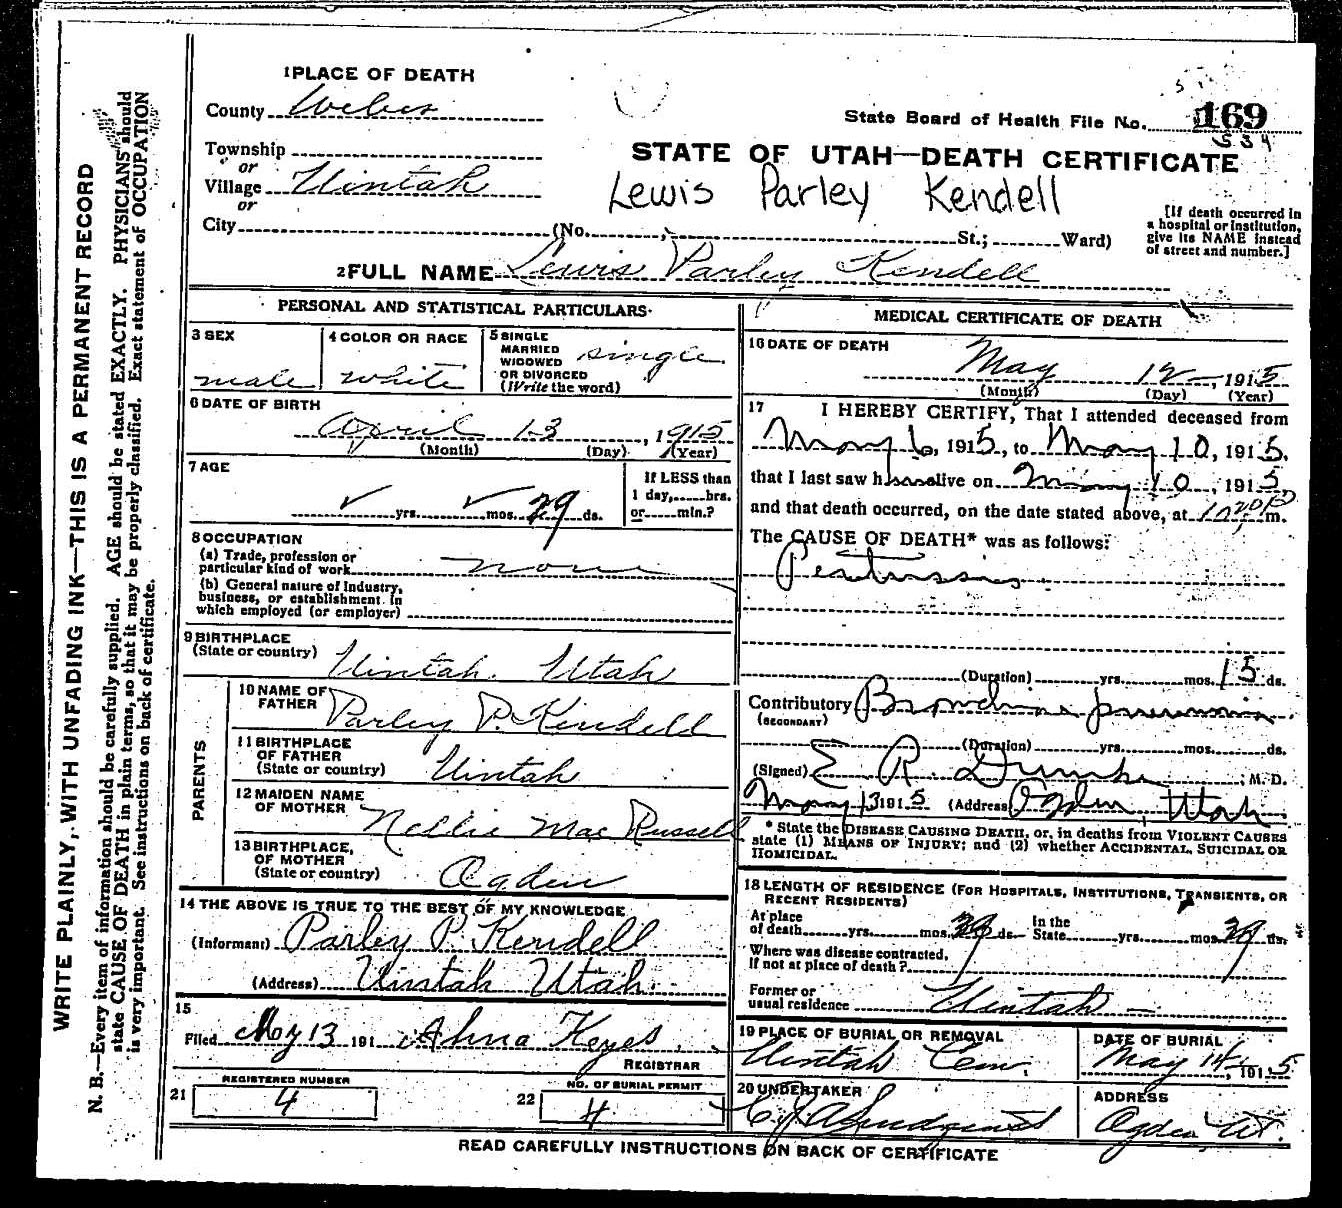 WRITE PLAINLY, WITH UNFADING INK—THIS IS A PERMANENT RECORD
N. B.—Every item of information should be carefully supplied. AGE should be stated EXACTLY. PHYSICIANS should
state CAUSE OF DEATH in plain terms, so that it may be properly classified. Exact statement of OCCUPATION
is very important. See instructions on back of certificate.
1 PLACE OF DEATH
County Weber
State Board of Health File No. 169
534
Township
or
Village Uintah
or
City (No. St.; Ward)
STATE OF UTAH—DEATH CERTIFICATE
Lewis Parley Kendell
[If death occurred in
a hospital or institution,
give its NAME instead
of street and number.]
2 FULL NAME Lewis Parley Kendell
PERSONAL AND STATISTICAL PARTICULARS
3 SEX
male
4 COLOR OR RACE
white
5 SINGLE
MARRIED
WIDOWED
OR DIVORCED
(Write the word)
single
6 DATE OF BIRTH
April 13, 1915
(Month) (Day) (Year)
7 AGE
yrs. mos. 29 ds.
If LESS than
1 day, hrs.
or min.?
8 OCCUPATION
(a) Trade, profession or
particular kind of work none
(b) General nature of Industry,
business, or establishment in
which employed (or employer)
9 BIRTHPLACE
(State or country) Uintah. Utah
PARENTS
10 NAME OF
FATHER Parley P. Kendell
11 BIRTHPLACE
OF FATHER
(State or country) Uintah
12 MAIDEN NAME
OF MOTHER Nellie Mae Russell
13 BIRTHPLACE,
OF MOTHER
(State or country) Ogden
14 THE ABOVE IS TRUE TO THE BEST OF MY KNOWLEDGE
(Informant) Parley P. Kendell
(Address) Uintah Utah.
15
Filed May 13 191 Alma Keyes.
REGISTRAR
21 REGISTERED NUMBER
4
22 NO. OF BURIAL PERMIT
4
MEDICAL CERTIFICATE OF DEATH
16 DATE OF DEATH
May 12, 1915
(Month) (Day) (Year)
17 I HEREBY CERTIFY, That I attended deceased from
May 6, 1915, to May 10, 1915.
that I last saw h alive on May 10, 1915
and that death occurred, on the date stated above, at m.
The CAUSE OF DEATH* was as follows:
Pertussis.
(Duration) yrs. mos. 15 ds.
Contributory
(SECONDARY)
pneumonia.
(Duration) yrs. mos. ds.
(Signed) E. R. Dumke, M. D.
May 13 1915 (Address) Ogden, Utah
* State the DISEASE CAUSING DEATH, or, in deaths from VIOLENT CAUSES
state (1) MEANS OF INJURY; and (2) whether ACCIDENTAL, SUICIDAL OR
HOMICIDAL.
18 LENGTH OF RESIDENCE (FOR HOSPITALS, INSTITUTIONS, TRANSIENTS, OR
RECENT RESIDENTS)
At place
of death yrs. mos. 29 ds. In the
State yrs. mos. 29 ds.
Where was disease contracted,
if not at place of death?
Former or
usual residence Uintah —
19 PLACE OF BURIAL OR REMOVAL
Uintah Cem.
DATE OF BURIAL
May 14, 1915
20 UNDERTAKER
ADDRESS
Ogden, Ut.
READ CAREFULLY INSTRUCTIONS ON BACK OF CERTIFICATE